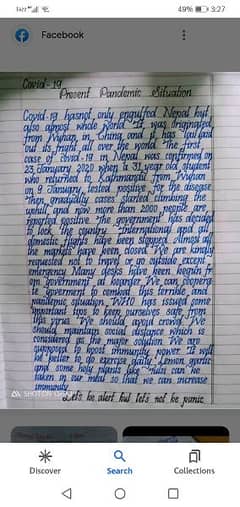 49% 3:27
Facebook
Covid-19
Present Pandemic Situation
Covid-19 hasnot only engulfed Nepal but
also almost whole world. It was originated
from Wuhan, in China and it has laid
out its fright all over the world. The first
case of covid-19 in Nepal was confirmed on
23 January, 2020 when a 31 year old student
who returned to Kathmandu from Wuhan
on 9 January, tested positive for the disease
Then gradually cases started climbing the
uphill and now more than 2000 people are
reported positive. The government has decided
to lock the country. International and all
domestic flights have been stopped. Almost all
the markets have been closed. We are kindly
requested not to travel or go outside except
emergency. Many desks have been
government at We can cooperate
government to combat this terrible and
pandemic situation. WHO has issued some
important tips to keep ourselves safe from
this virus. We should avoid crowd. We
should maintain social distance which is
considered as the major solution. We are
supposed to boost immunity power. It will
be better to do exercise daily. Lemon, garlic
and some holy plants like tulsi can be
taken in our meal so that we can increase
immunity.
Let's be alert but let's not be panic
Discover
Search
Collections